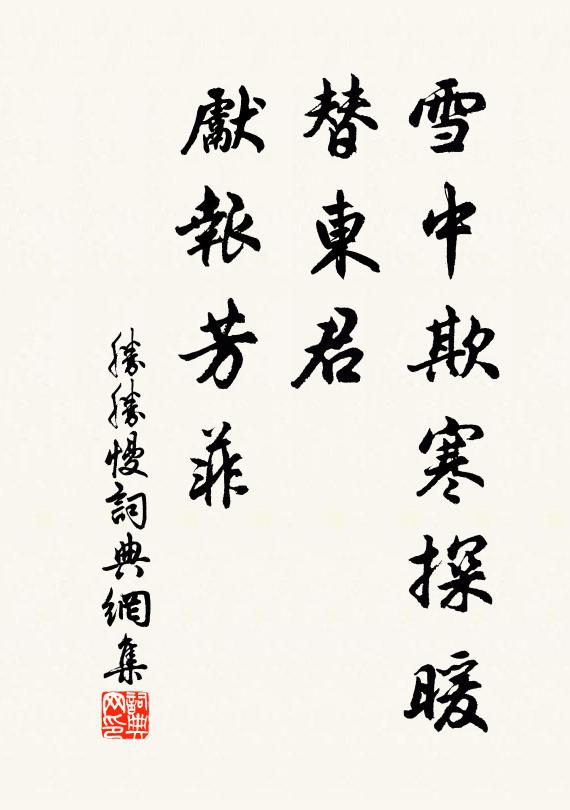 雪中欺寒探暖
替東君
獻報芳菲
勝勝慢詞典網集
詞典
网印